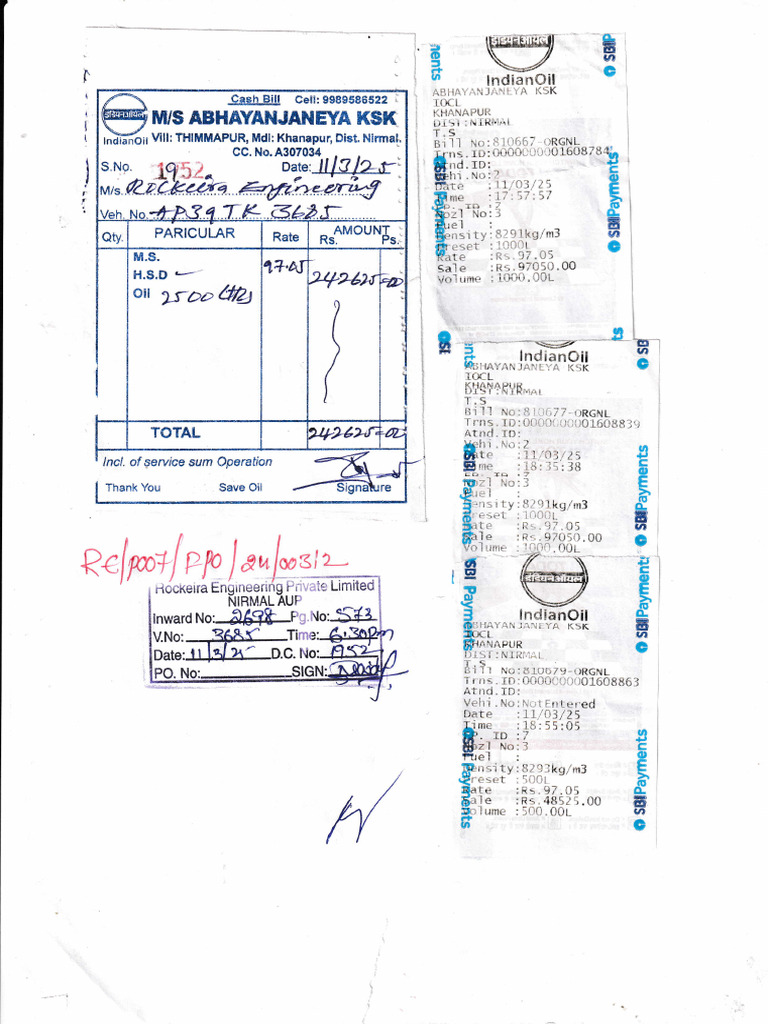 Cash Bill Cell: 9989586522
इंडियनऑयल
IndianOil
M/S ABHAYANJANEYA KSK
Vill: THIMMAPUR, Mdl: Khanapur, Dist. Nirmal.
CC. No. A307034
S.No. 1952 Date: 11/3/25
M/s. Rockeira Engineering
Veh. No. AP39TK 3685
Qty. PARICULAR Rate AMOUNT
Rs. Ps.
M.S.
H.S.D 97.05 242625=00
Oil 2500 Ltrs
TOTAL 242625=00
Incl. of service sum Operation
Thank You Save Oil Signature
RE/P007/PPO/24/00312
Rockeira Engineering Private Limited
NIRMAL AUP
Inward No: 2698 Pg.No: 573
V.No: 3685 Time: 6:30pm
Date: 11/3/25 D.C. No: 1952
PO. No: SIGN:
इंडियनऑयल
IndianOil
ABHAYANJANEYA KSK
IOCL
KHANAPUR
DIST:NIRMAL
T.S
Bill No:810667-ORGNL
Trns.ID:0000000001608784
Atnd.ID:
Vehi.No:2
Date :11/03/25
Time :17:57:57
FP. ID :7
Nozl No:3
Fuel :
Density:8291kg/m3
Preset :1000L
Rate :Rs.97.05
Sale :Rs.97050.00
Volume :1000.00L
SBI Payments
IndianOil
ABHAYANJANEYA KSK
IOCL
KHANAPUR
DIST:NIRMAL
T.S
Bill No:810677-ORGNL
Trns.ID:0000000001608839
Atnd.ID:
Vehi.No:2
Date :11/03/25
Time :18:35:38
FP. ID :7
Nozl No:3
Fuel :
Density:8291kg/m3
Preset :1000L
Rate :Rs.97.05
Sale :Rs.97050.00
Volume :1000.00L
SBI Payments
इंडियनऑयल
IndianOil
ABHAYANJANEYA KSK
IOCL
KHANAPUR
DIST:NIRMAL
T.S
Bill No:810679-ORGNL
Trns.ID:0000000001608863
Atnd.ID:
Vehi.No:NotEntered
Date :11/03/25
Time :18:55:05
FP. ID :7
Nozl No:3
Fuel :
Density:8293kg/m3
Preset :500L
Rate :Rs.97.05
Sale :Rs.48525.00
Volume :500.00L
SBI Payments